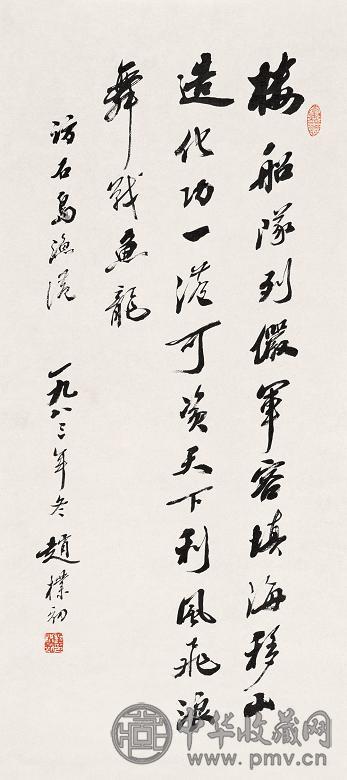 楼船隊列儼軍容填海移山
造化功一港可資天下利風飛浪
舞戰魚龍
訪石島漁港
一九八三年冬 趙樸初
中华收藏网
www.pmv.cn